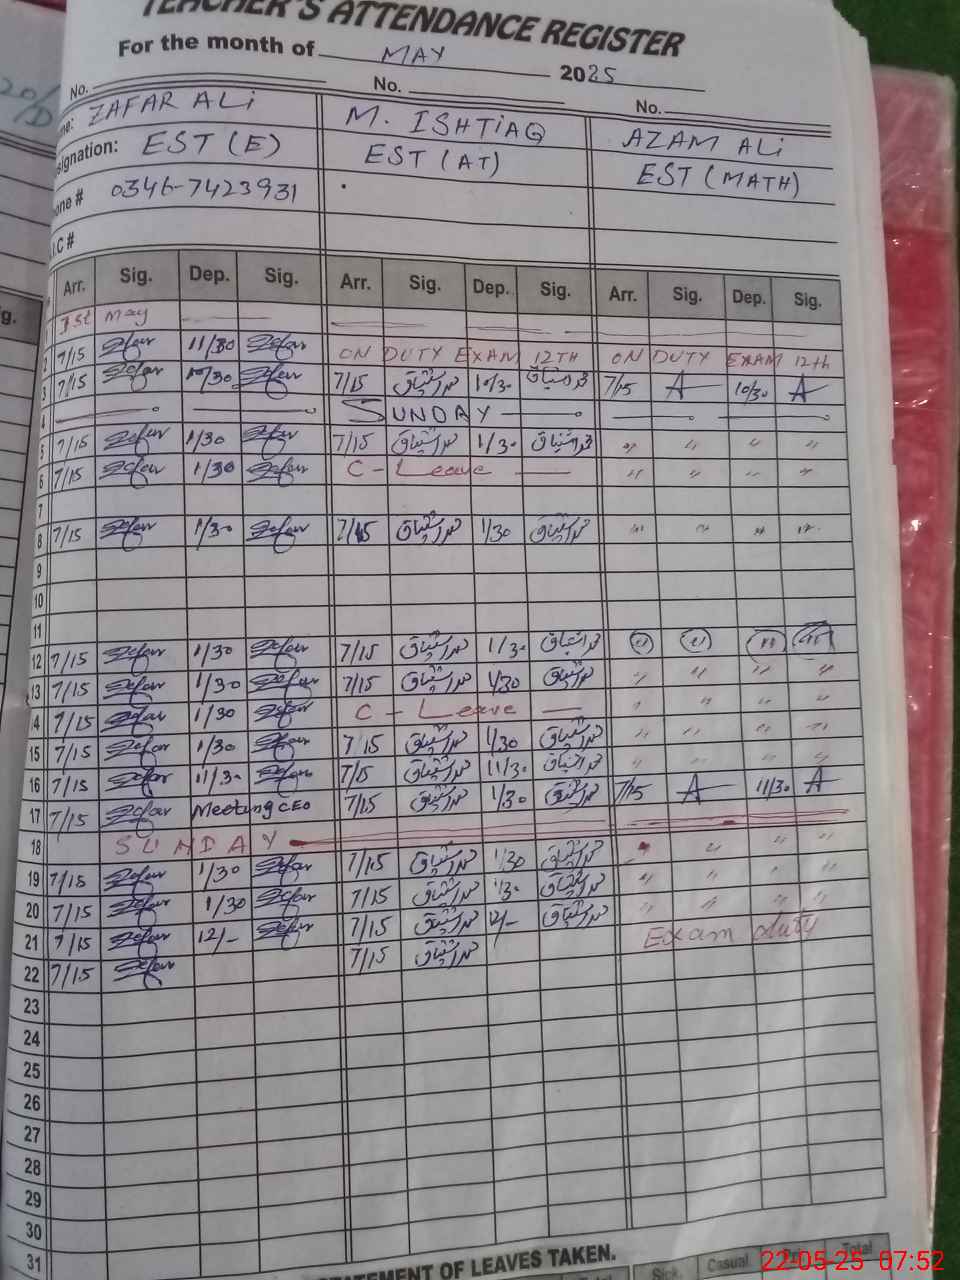 TEACHER'S ATTENDANCE REGISTER
For the month of MAY 2025
No. No. No.
ZAFAR ALi M. ISHTiAQ AZAM ALi
signation: EST (E) EST (AT) EST (MATH)
one # 0346-7423931
I.C #
Arr. Sig. Dep. Sig. Arr. Sig. Dep. Sig. Arr. Sig. Dep. Sig.
1st May
2 7/15 Zafar 11/30 Zafar ON DUTY EXAM 12TH ON DUTY EXAM 12th
3 7/15 Zafar 10/30 Zafar 7/15 محمد اشتیاق 10/30 محمد اشتیاق 7/15 A 10/30 A
4 SUNDAY
5 7/15 Zafar 1/30 Zafar 7/15 محمد اشتیاق 1/30 محمد اشتیاق " " " "
6 7/15 Zafar 1/30 Zafar C - Leave " " " "
7
8 7/15 Zafar 1/30 Zafar 7/15 محمد اشتیاق 1/30 محمد اشتیاق " " " "
9
10
11
12 7/15 Zafar 1/30 Zafar 7/15 محمد اشتیاق 1/30 محمد اشتیاق " " " "
13 7/15 Zafar 1/30 Zafar 7/15 محمد اشتیاق 1/30 محمد اشتیاق " " " "
14 7/15 Zafar 1/30 Zafar C - Leave " " " "
15 7/15 Zafar 1/30 Zafar 7/15 محمد اشتیاق 1/30 محمد اشتیاق " " " "
16 7/15 Zafar 11/30 Zafar 7/15 محمد اشتیاق 11/30 محمد اشتیاق " " " "
17 7/15 Zafar Meeting CEO 7/15 محمد اشتیاق 1/30 محمد اشتیاق 7/15 A 11/30 A
18 SUNDAY
19 7/15 Zafar 1/30 Zafar 7/15 محمد اشتیاق 1/30 محمد اشتیاق " " "
20 7/15 Zafar 1/30 Zafar 7/15 محمد اشتیاق 1/30 محمد اشتیاق " " " "
21 7/15 Zafar 12/- Zafar 7/15 محمد اشتیاق 12/- محمد اشتیاق " " " "
22 7/15 Zafar 7/15 محمد اشتیاق Exam duty
23
24
25
26
27
28
29
30
31
STATEMENT OF LEAVES TAKEN.
Total Sick Casual Total
22-05-25 07:52